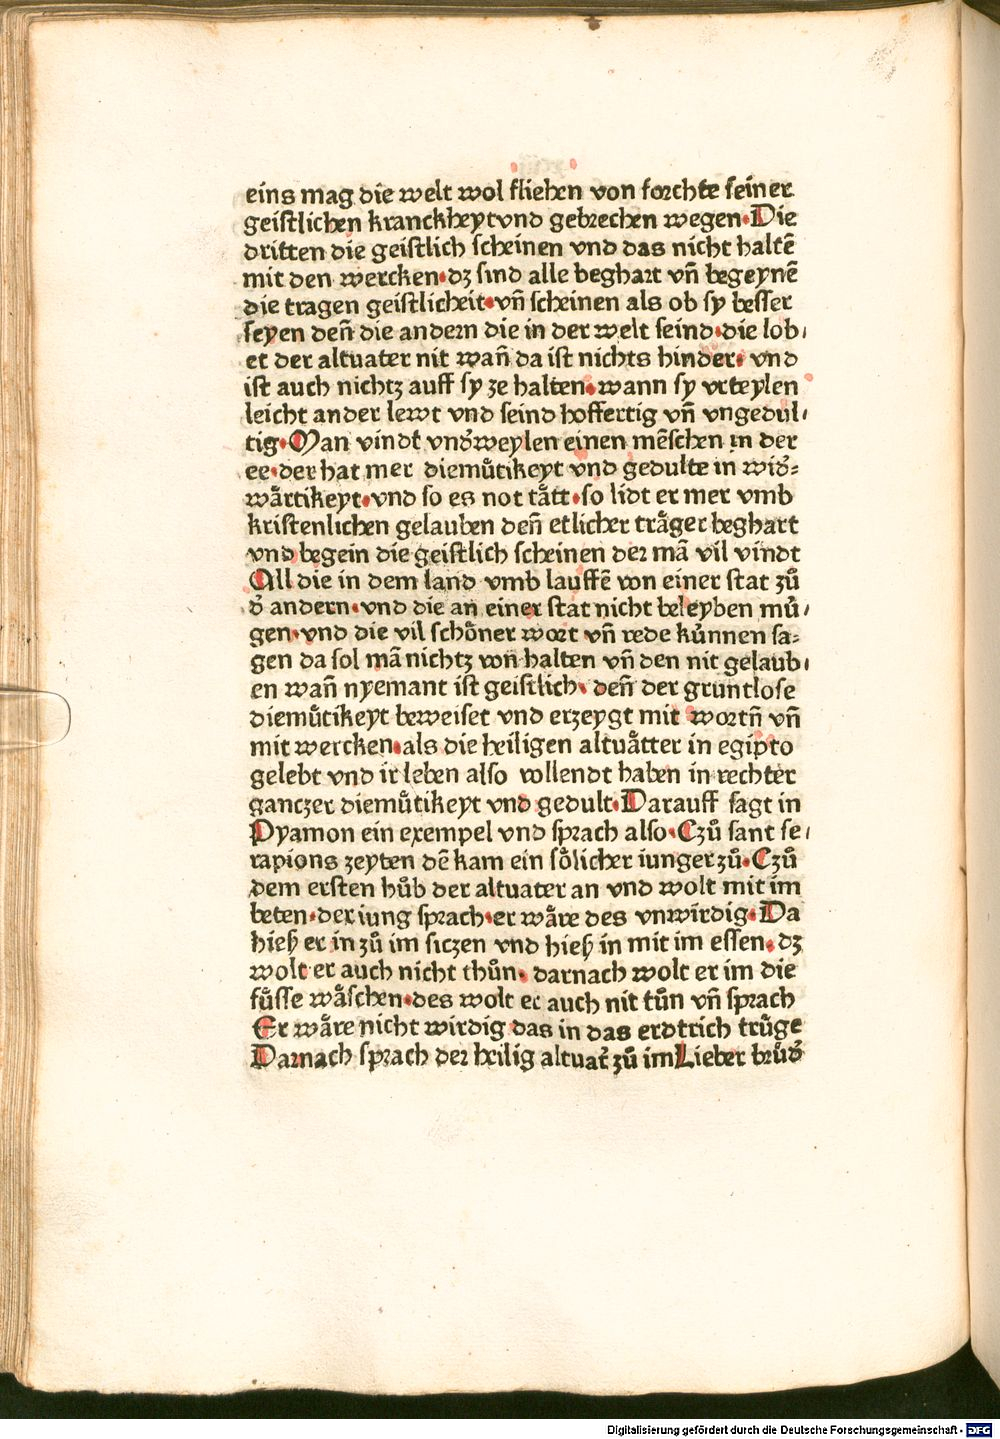 eins mag die welt wol fliehen von forchte seiner
geistlichen kranckheyt vnd gebrechen wegen. Die
dritten die geistlich scheinen vnd das nicht haltē
mit den wercken. dz sind alle beghart vn̄ begeynē
die tragen geistlicheit. vn̄ scheinen als ob sy besser
seyen den̄ die andern die in der welt seind. die lob,
et der altuater nit wan̄ da ist nichts hinder. vnd
ist auch nichtz auff sy ze halten. wann sy vrteylen
leicht ander lewt vnd seind hoffertig vn̄ vngedul,
tig. Man vindt vnd᷑weylen einen mēschen in der
ee. der hat mer diemuͤtikeyt vnd gedulte in wid᷑⸗
waͤrtikeyt. vnd so es not taͤtt. so lidt er mer vmb
kristenlichen gelauben den̄ etlicher traͤger beghart
vnd begein die geistlich scheinen der mā vil vindt
All die in dem land vmb lauffē von einer stat zuͦ
d᷑ andern. vnd die an einer stat nicht beleyben muͤ,
gen. vnd die vil schoͤner wort vn̄ rede kuͤnnen sa⸗
gen da sol mā nichtz von halten vn̄ den nit gelaub,
en wan̄ nyemant ist geistlich. den̄ der gruntlose
diemuͤtikeyt beweiset vnd erzeygt mit wortn̄ vn̄
mit wercken. als die heiligen altuaͤtter in egipto
gelebt vnd ir leben also vollendt haben in rechter
ganczer diemuͤtikeyt vnd gedult. Darauff sagt in
Pyamon ein exempel vnd sprach also. Czuͦ sant se,
rapions zeyten dē kam ein soͤlicher iunger zuͦ. Czuͦ
dem ersten huͦb der altuater an vnd wolt mit im
beten. der iung sprach. er waͤre des vnwirdig. Da
hieß er in zuͦ im siczen vnd hieß in mit im essen. dz
wolt er auch nicht thuͦn. darnach wolt er im die
fuͤsse waͤschen. des wolt er auch nit tuͦn vn̄ sprach
Er waͤre nicht wirdig das in das erdtrich truͤge
Darnach sprach der heilig altuat᷑ zuͦ im Lieber bruͦd᷑
Digitalisierung gefördert durch die Deutsche Forschungsgemeinschaft - DFG